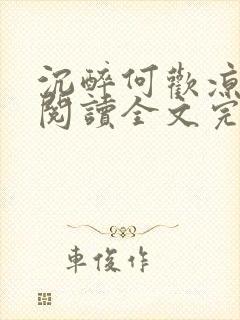 沉醉何歡涼
閱讀全文完
車俊作